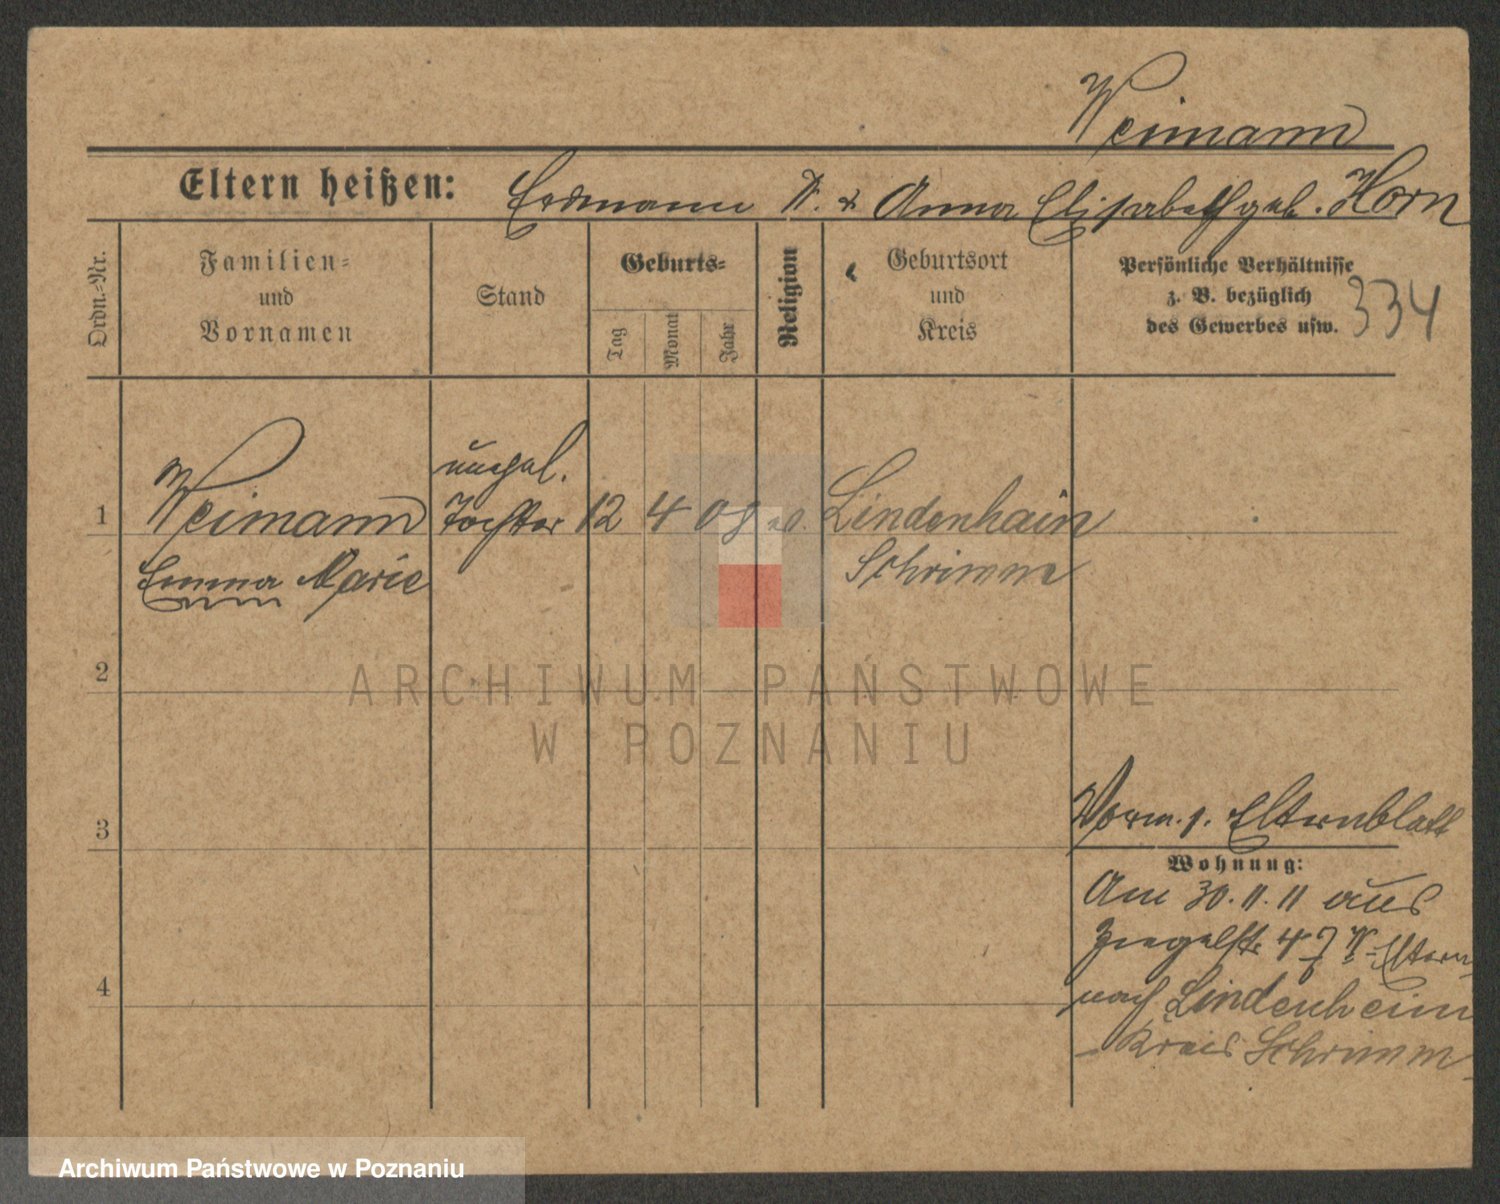 Weimann
Eltern heißen: Erdmann W. & Anna Elisabeth geb. Horn
Ordn.-Nr.
Familien-
und
Vornamen
Stand
Geburts-
Tag
Monat
Jahr
Religion
Geburtsort
und
Kreis
Persönliche Verhältnisse
z. B. bezüglich
des Gewerbes usw.
334
unehel.
1 Weimann Tochter 12 4 08 Lindenhain
Emma Marie Schrimm
2
ARCHIWUM PAŃSTWOWE
W POZNANIU
3
Vorm. s. Elternblatt
Wohnung:
Am 30.11.11 aus
4
Ziegelstr 47 Eltern
nach Lindenheim
Kreis Schrimm
Archiwum Państwowe w Poznaniu